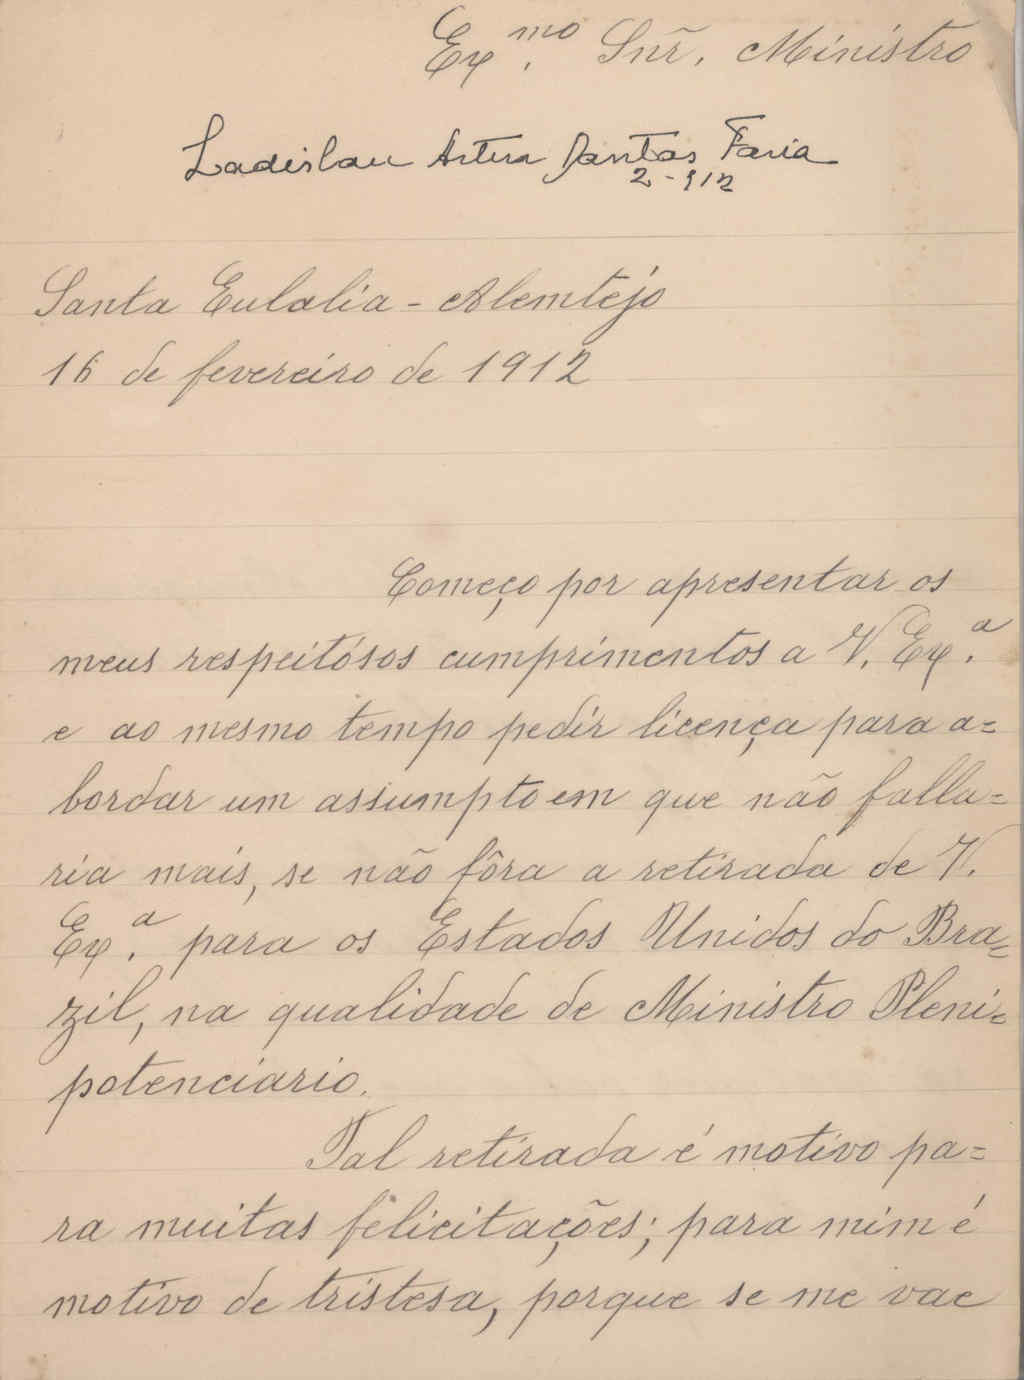 Ex.mo Snr̃. Ministro
Ladislau Artur Dantas Faria
2-912
Santa Eulalia - Alemtéjo
16 de fevereiro de 1912
Começo por apresentar os
meus respeitósos cumprimentos a V. Ex.a
e ao mesmo tempo pedir licença para a=
bordar um assumpto em que não falla=
ria mais, se não fôra a retirada de V.
Ex.a para os Estados Unidos do Bra=
zil, na qualidade de Ministro Pleni=
potenciario.
Tal retirada é motivo pa=
ra muitas felicitações; para mim é
motivo de tristesa, porque se me vae